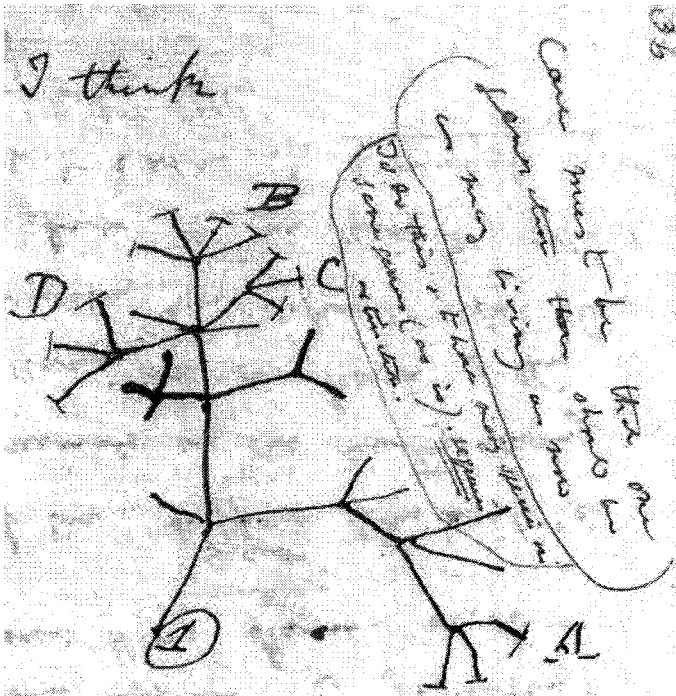 I think
36
Case must be that one
generation then should be
as many living as now
To do this & to have many species in
same genus (as is). requires
extinction.
B
D
C
A
1